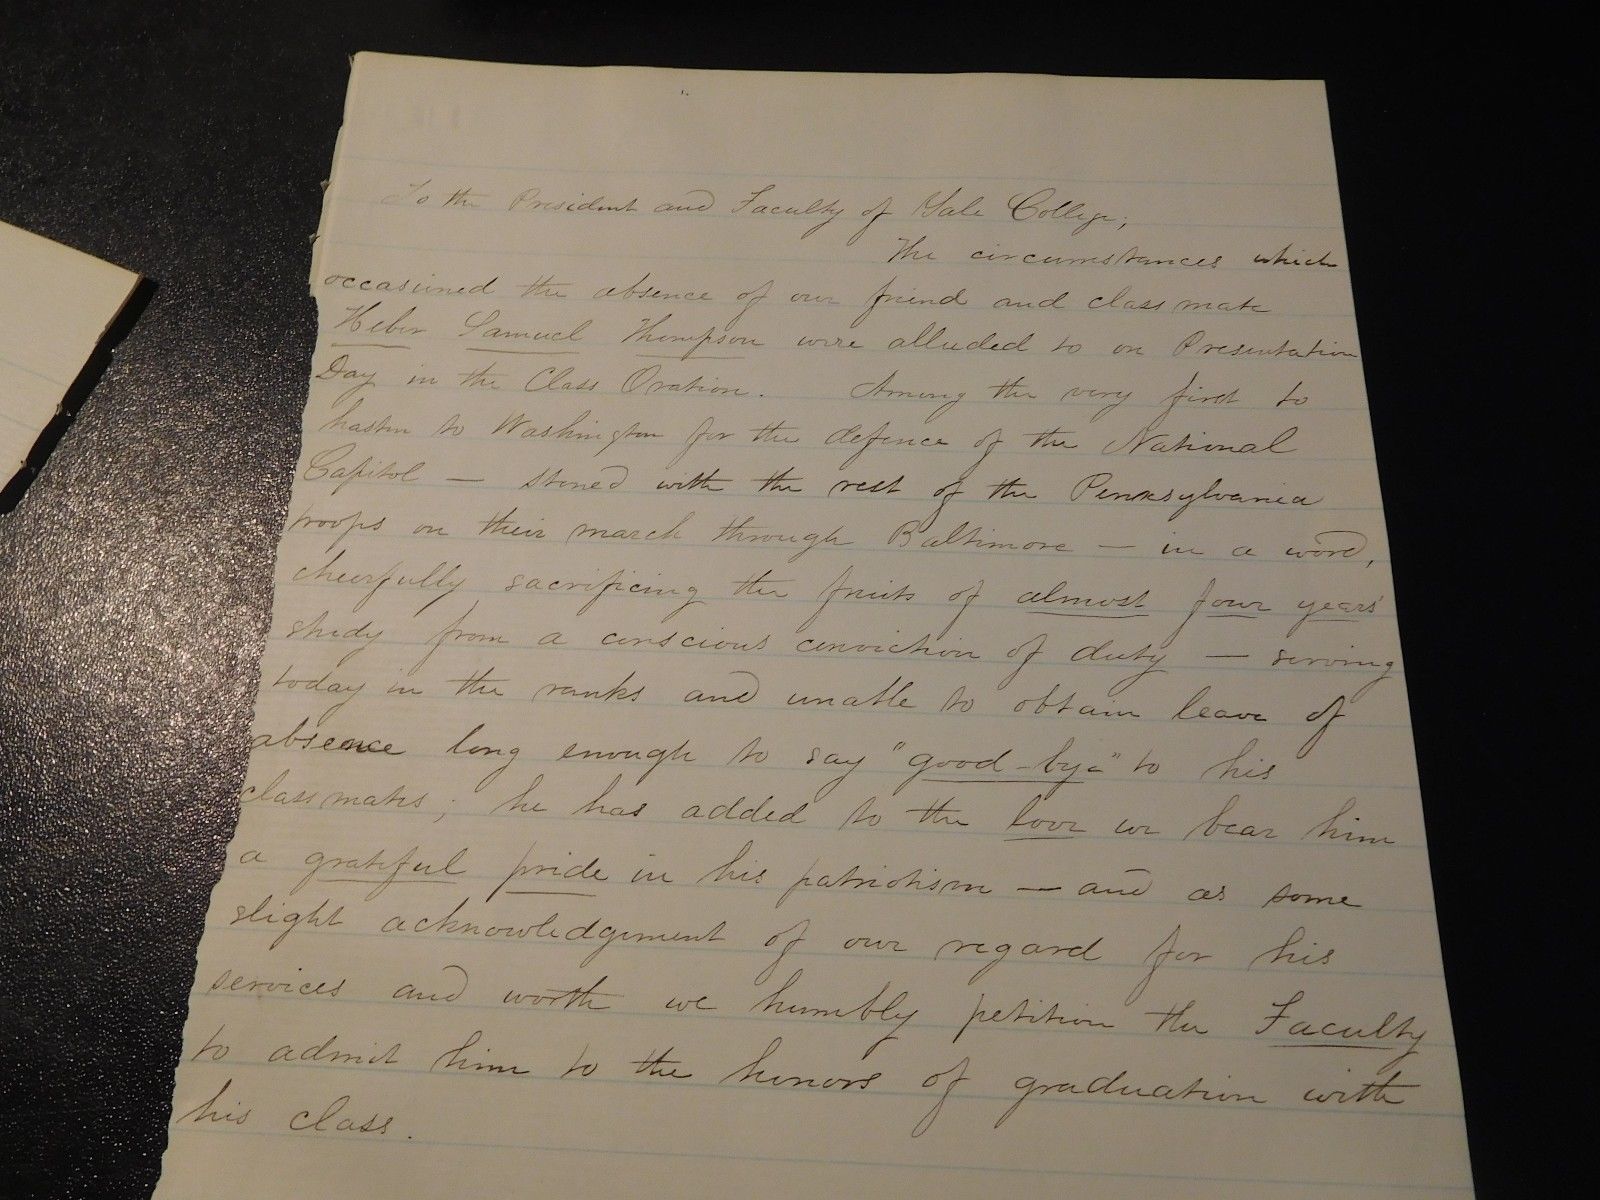 To the President and Faculty of Yale College;
The circumstances which
occasioned the absence of our friend and classmate
Heber Samuel Thompson were alluded to on Presentation
Day in the Class Oration. Among the very first to
hasten to Washington for the defence of the National
Capitol — stoned with the rest of the Pennsylvania
troops on their march through Baltimore — in a word,
cheerfully sacrificing the fruits of almost four years'
study from a conscious conviction of duty — serving
today in the ranks and unable to obtain leave of
absence long enough to say "good-bye" to his
classmates; he has added to the love we bear him
a grateful pride in his patriotism — and as some
slight acknowledgement of our regard for his
services and worth we humbly petition the Faculty
to admit him to the honors of graduation with
his class.